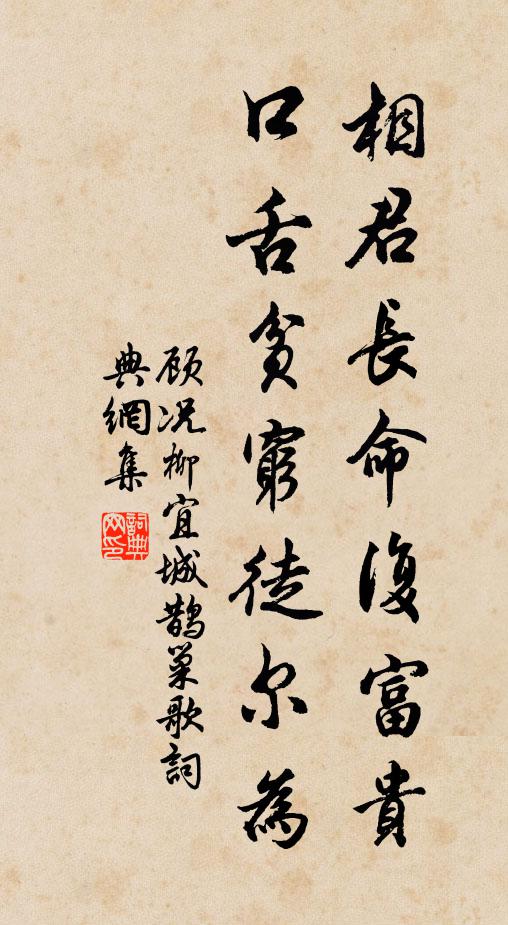 相君長命復富貴
口舌貧窮徒尔為
顾况柳宜城鵲巢歌詞
典網集
詞典網印